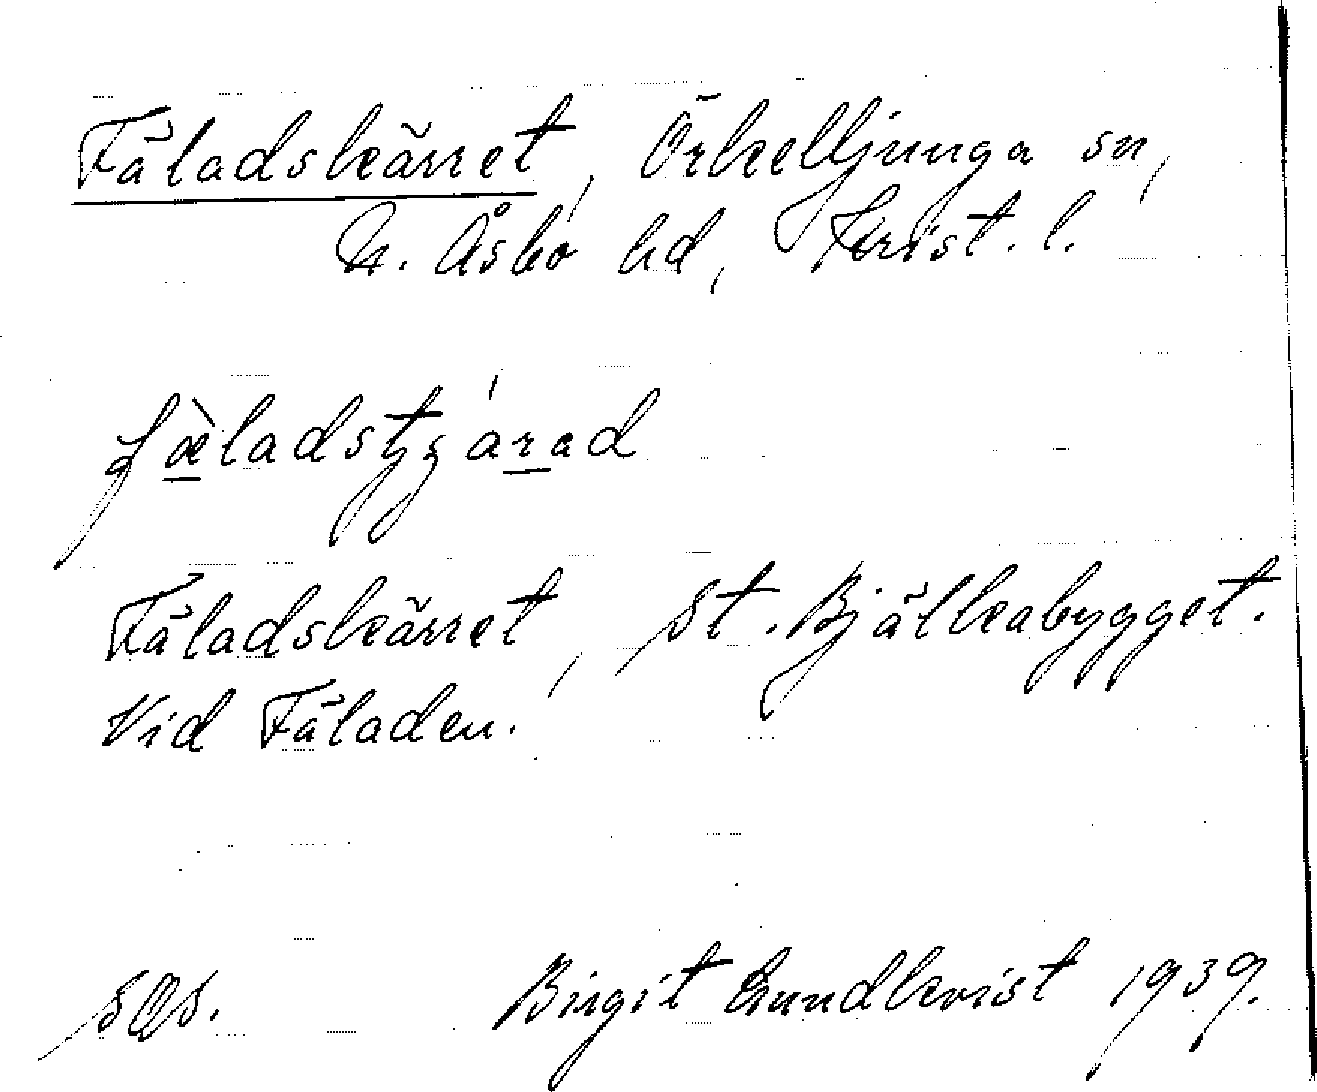 Fåladskärret, Örkelljunga sn,
N. Åsbo hd, Krist. l.
Fåladskärret, St. Bjälkabygget.
Vid Fåladen.
Birgit Lundkvist 1939.